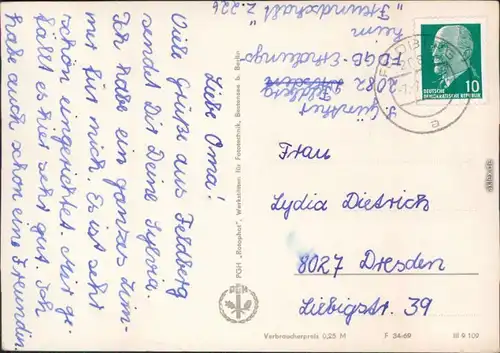 Liebe Oma!
Viele Grüße aus Feldberg
sendet Dir Deine Sylvia.
Ich habe ein ganzes Zim-
mer für mich. Es ist sehr
schön eingerichtet. Mir ge-
fällt es hier sehr gut. Ich
habe auch schon eine Freundin.
2082 Feldberg
FDGB-Erholungs
heim
"Freundschaft" Z. 226
PGH „Rotophot", Werkstätten für Fototechnik, Bestensee b. Berlin
PGH
10
DEUTSCHE
DEMOKRATISCHE REPUBLIK
a
Frau
Lydia Dietrich
8027 Dresden
Liebigstr. 39
Verbraucherpreis 0,25 M F 34-69 III 9 109